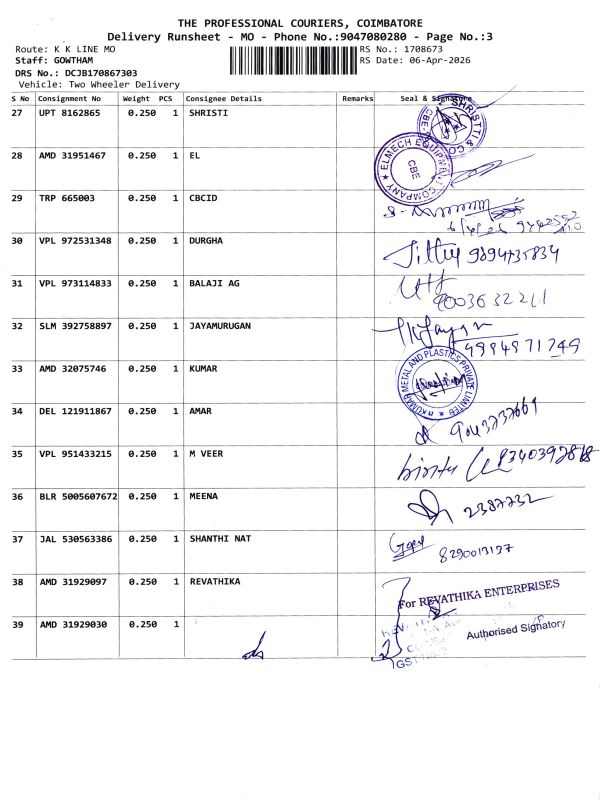 THE PROFESSIONAL COURIERS, COIMBATORE
Delivery Runsheet - MO - Phone No.:9047080280 - Page No.:3
Route: K K LINE MO RS No.: 1708673
Staff: GOWTHAM RS Date: 06-Apr-2026
DRS No.: DCJB170867303
Vehicle: Two Wheeler Delivery
S No Consignment No Weight PCS Consignee Details Remarks Seal & Signature
27 UPT 8162865 0.250 1 SHRISTI
SHRISTTI & CO CBE
28 AMD 31951467 0.250 1 EL
ELMECH EQUIPMENT COMPANY CBE
29 TRP 665003 0.250 1 CBCID
30 VPL 972531348 0.250 1 DURGHA
9894735834
31 VPL 973114833 0.250 1 BALAJI AG
9003632211
32 SLM 392758897 0.250 1 JAYAMURUGAN
9994971249
33 AMD 32075746 0.250 1 KUMAR
KUMAR METAL AND PLASTICS PRIVATE LIMITED
34 DEL 121911867 0.250 1 AMAR
35 VPL 951433215 0.250 1 M VEER
36 BLR 5005607672 0.250 1 MEENA
2387232
37 JAL 530563386 0.250 1 SHANTHI NAT
38 AMD 31929097 0.250 1 REVATHIKA
For REVATHIKA ENTERPRISES
39 AMD 31929030 0.250 1
Authorised Signatory